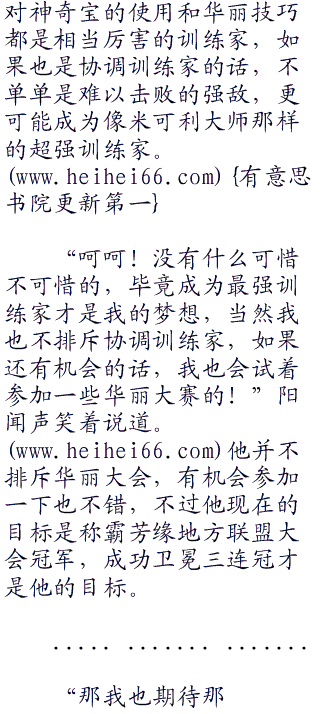 对神奇宝的使用和华丽技巧
都是相当厉害的训练家，如
果也是协调训练家的话，不
单单是难以击败的强敌，更
可能成为像米可利大师那样
的超强训练家。
(www.heihei66.com) {有意思
书院更新第一}
“呵呵！没有什么可惜
不可惜的，毕竟成为最强训
练家才是我的梦想，当然我
也不排斥协调训练家，如果
还有机会的话，我也会试着
参加一些华丽大赛的！”阳
闻声笑着说道。
(www.heihei66.com)他并不
排斥华丽大会，有机会参加
一下也不错，不过他现在的
目标是称霸芳缘地方联盟大
会冠军，成功卫冕三连冠才
是他的目标。
..... ....... .......
“那我也期待那